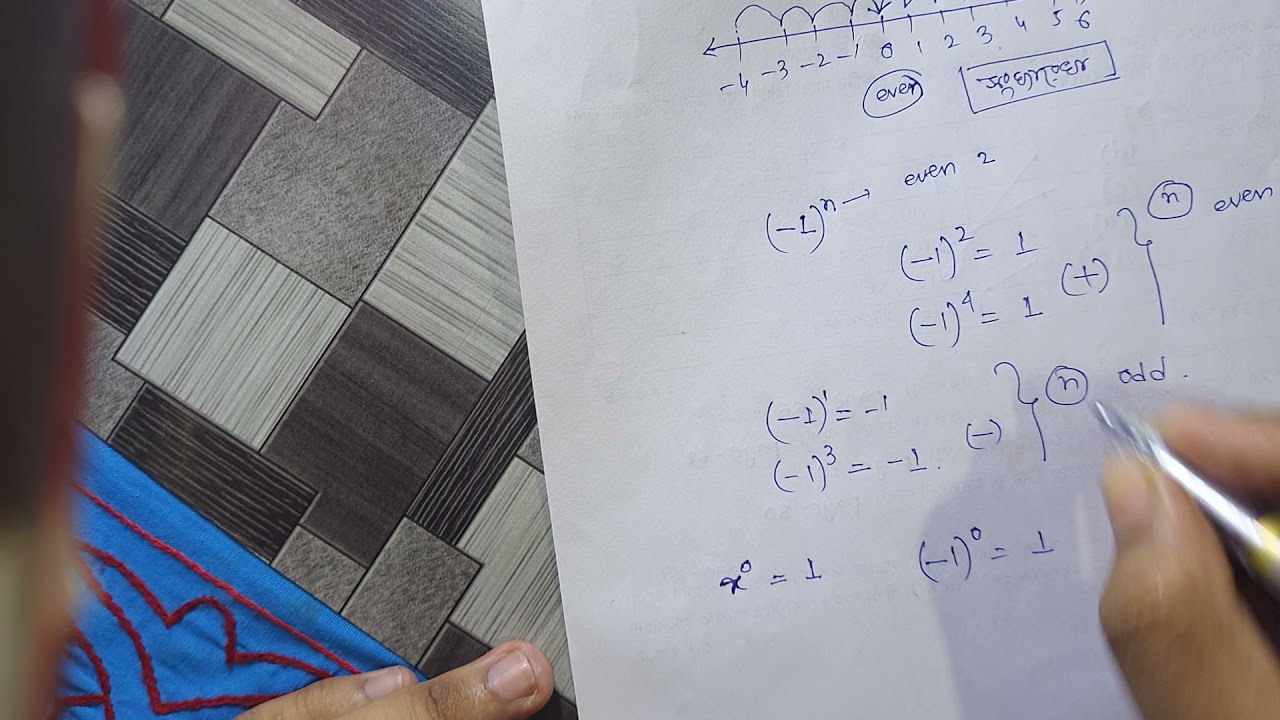 -4 -3 -2 -1 0 1 2 3 4 5 6
even
(-1)ⁿ → even 2
(-1)² = 1
(-1)⁴ = 1 (+)
n even
(-1)¹ = -1
(-1)³ = -1. (-)
n odd.
x⁰ = 1 (-1)⁰ = 1